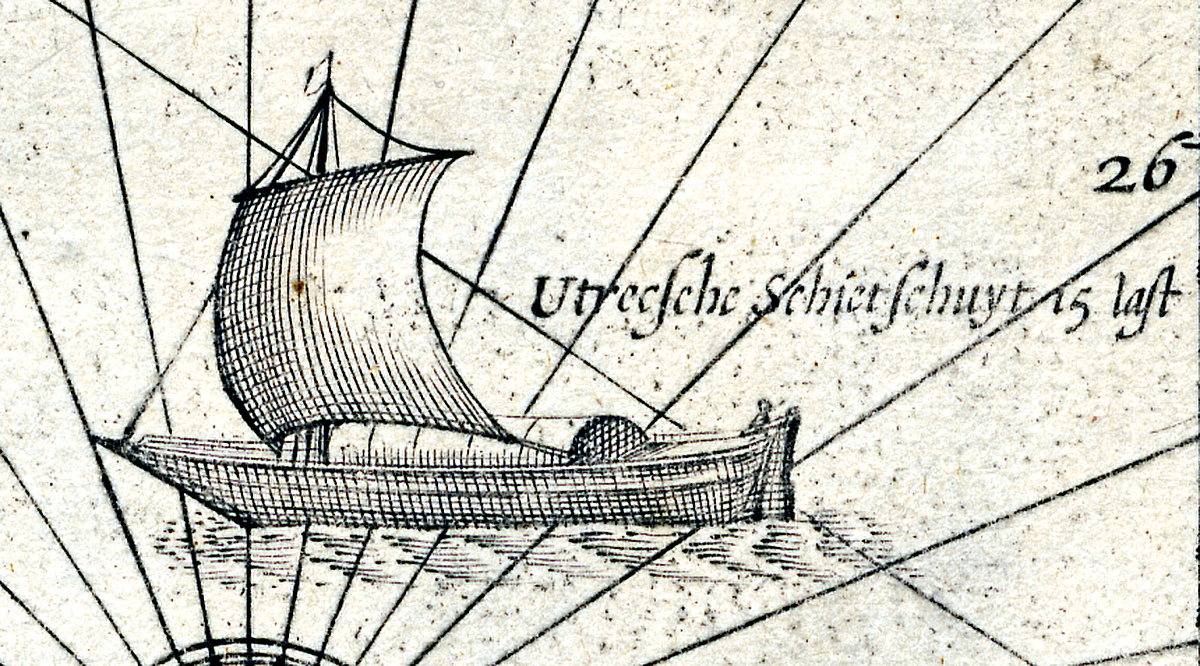 26
Utrecſche Schietſchuyt 15 laſt